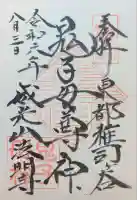 奉拝 東都雑司ヶ谷
鬼子母善神
威光山法明寺
令和
八月三日